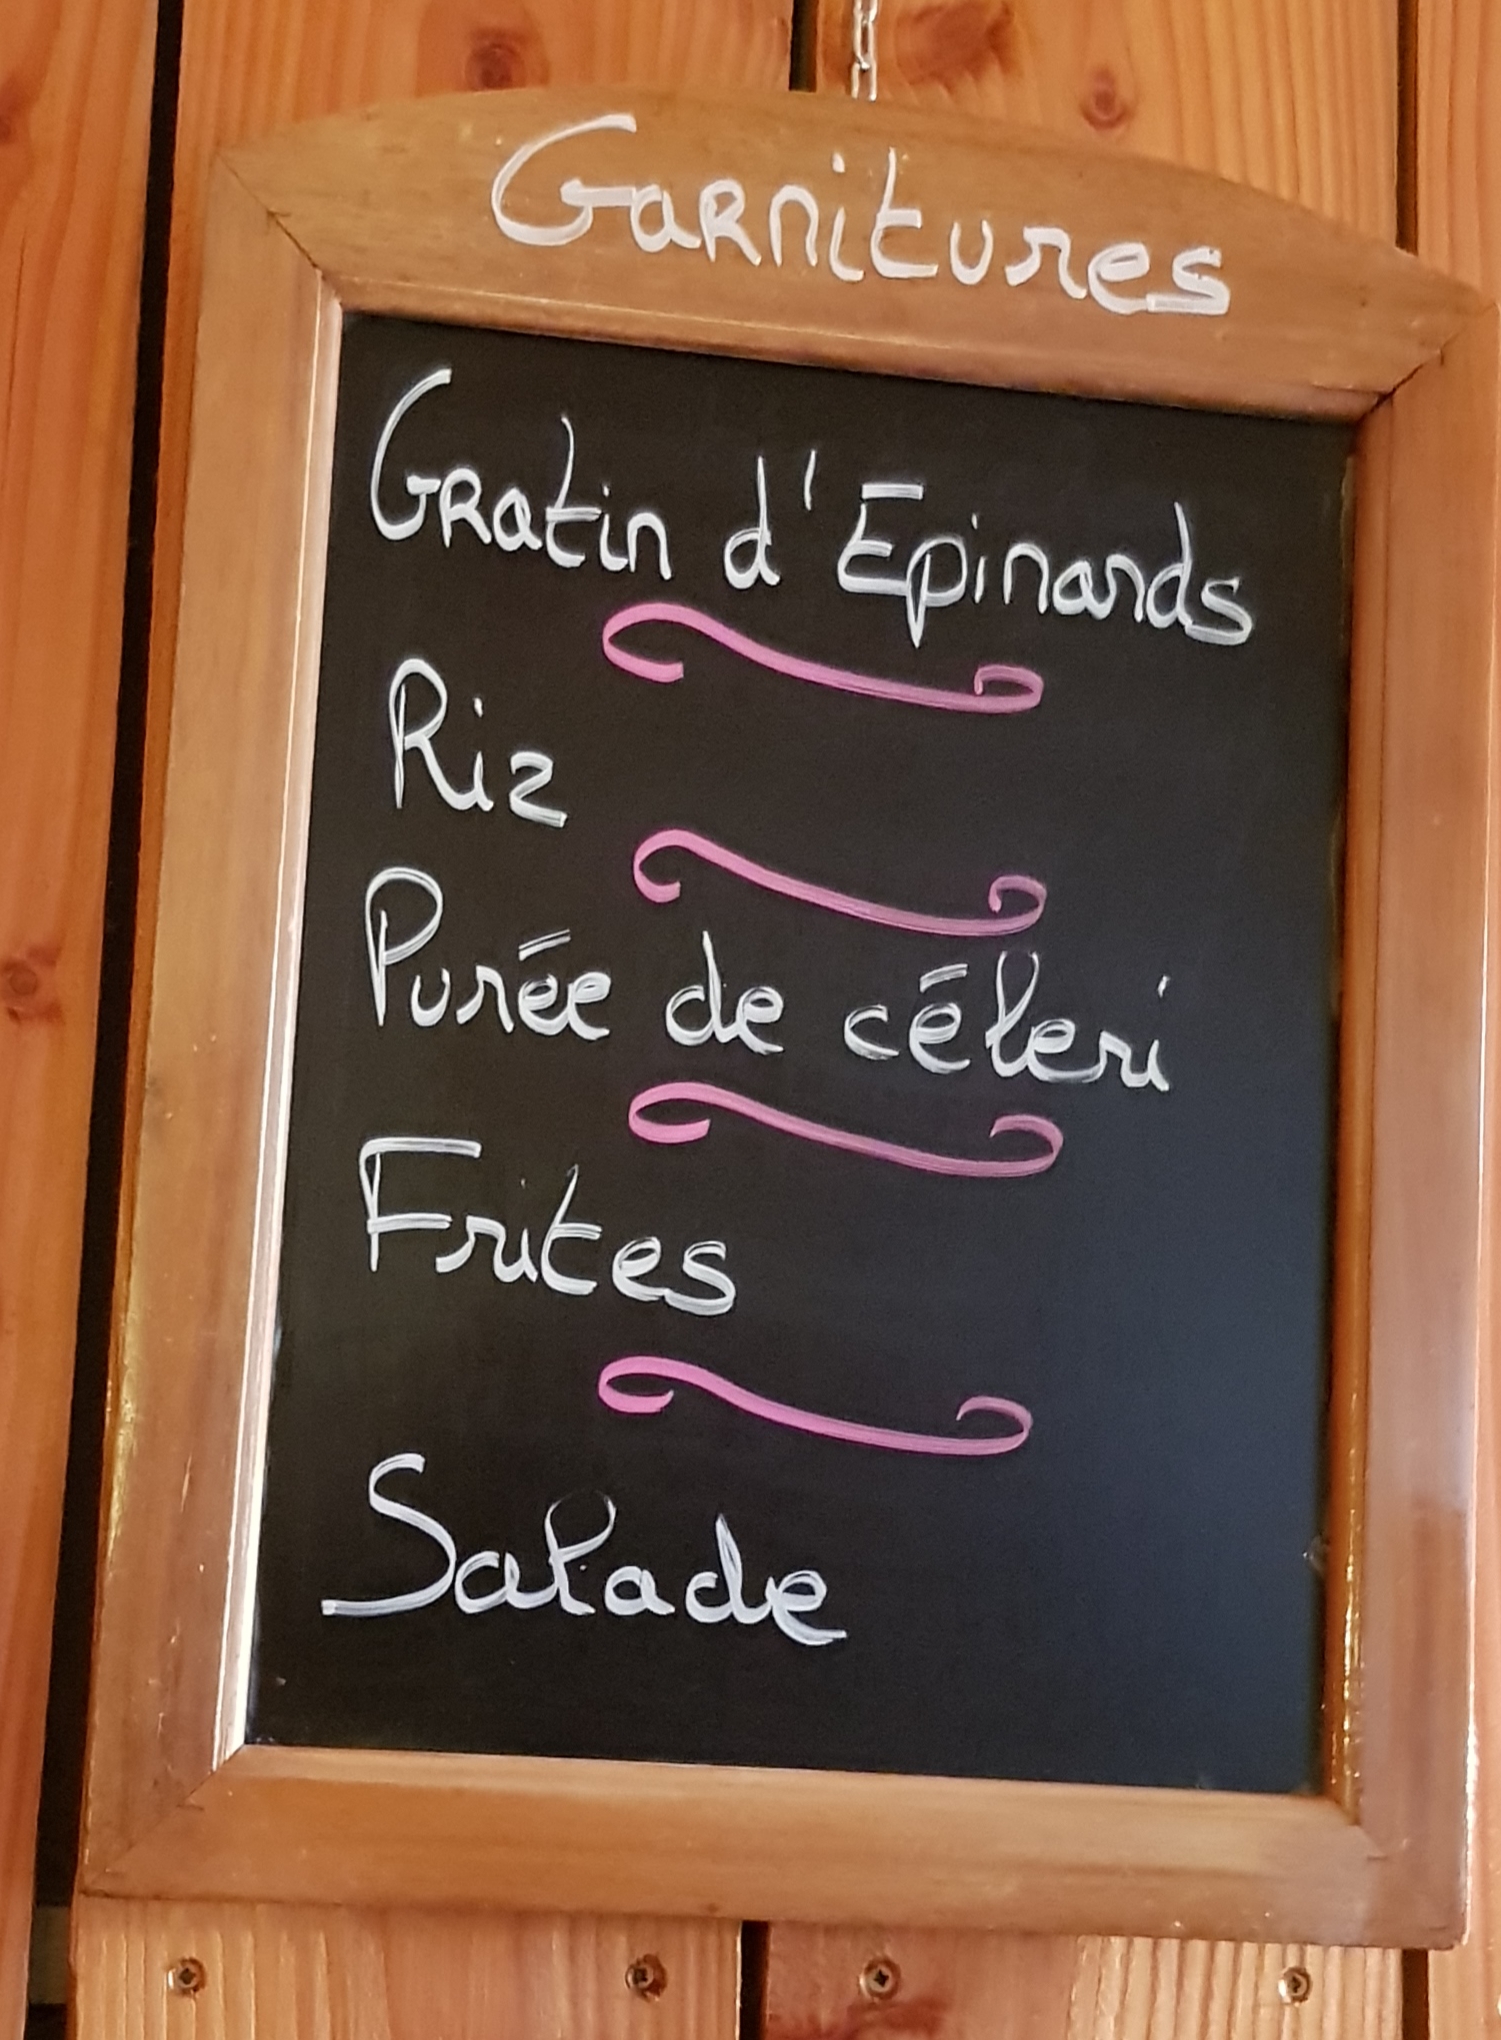 Garnitures
Gratin d'Epinards
Riz
Purée de céleri
Frites
Salade